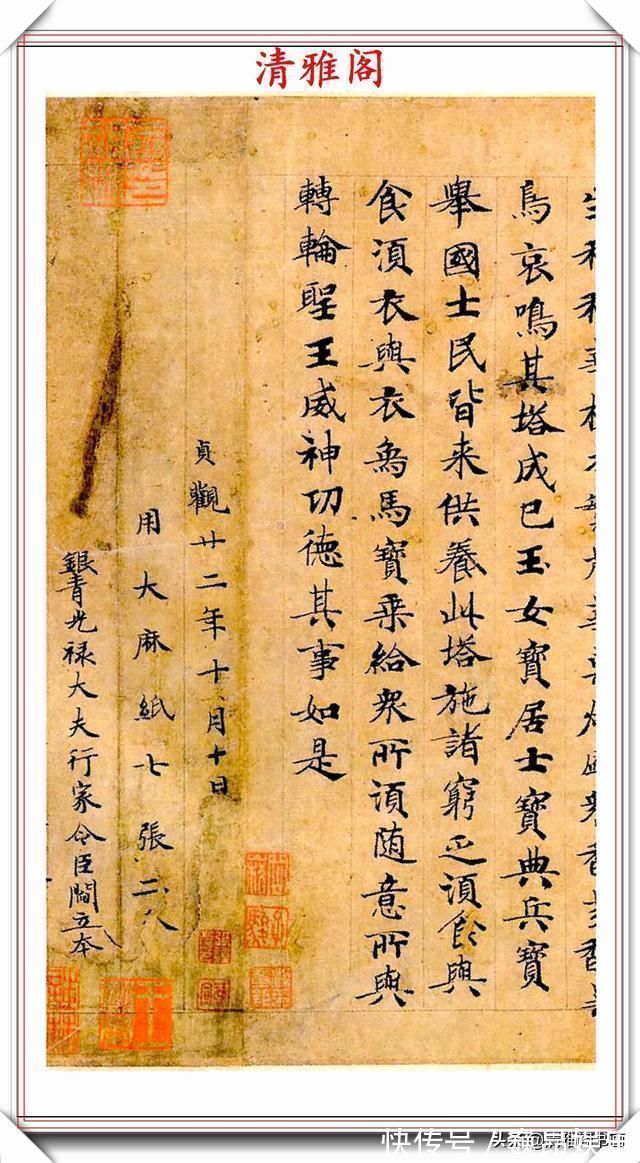 清雅阁
鳥哀鳴其塔成已玉女寶居士寶典兵寶
舉國士民皆来供養此塔施諸窮乏須食與
食須衣與衣象馬寶乘給衆所須随意所與
轉輪聖王威神功德其事如是
貞觀廿二年十月十日
用大麻紙七張二分
銀青光禄大夫行家令臣閻立本
快传号
头条